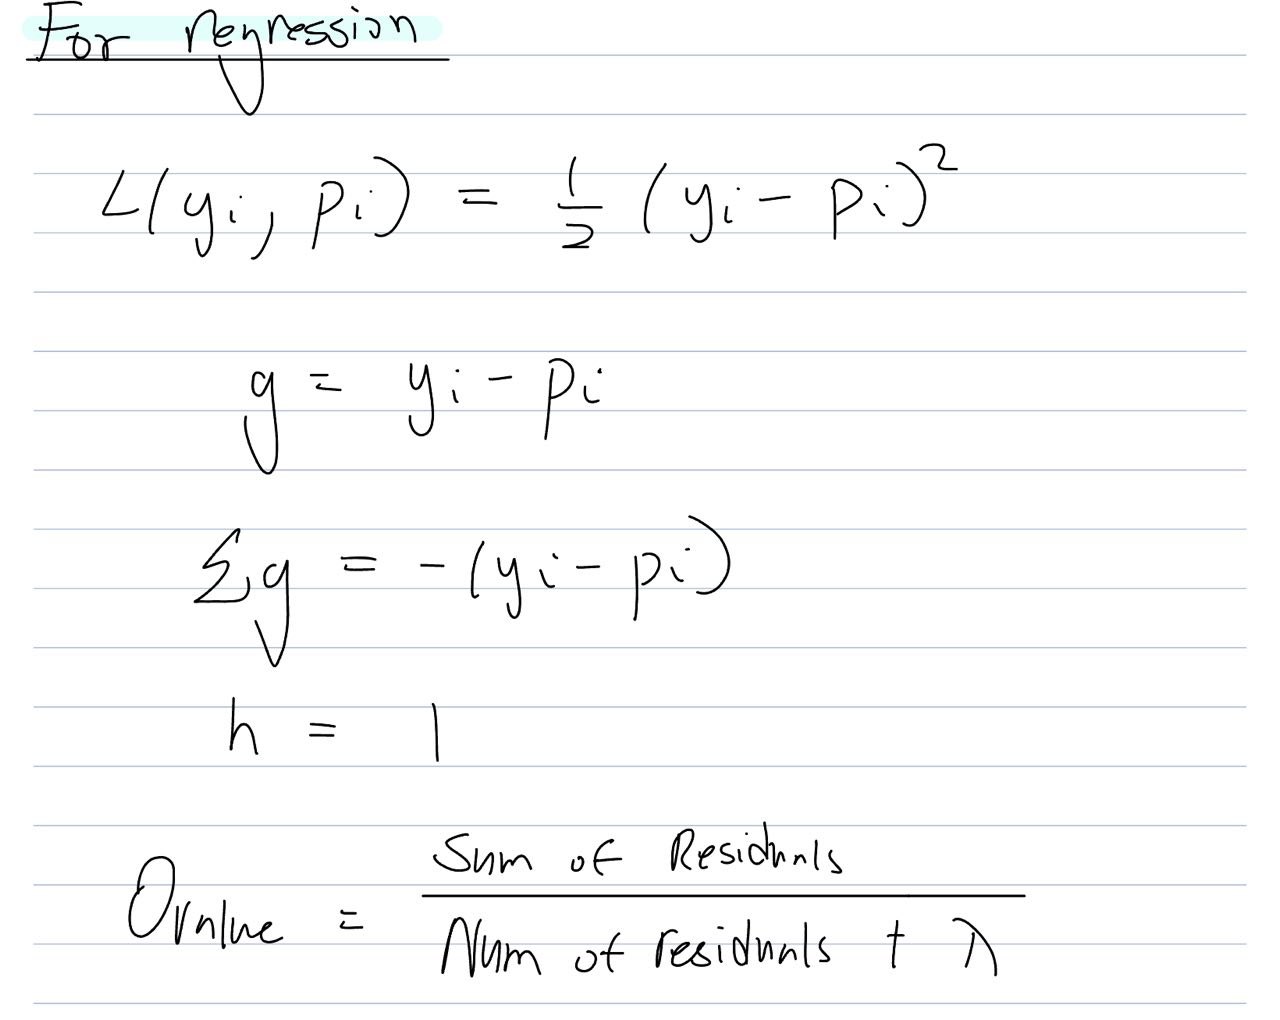 For regression
L(yi, pi) = 1/2 (yi - pi)²
g = yi - pi
Σg = -(yi - pi)
h = 1
Ovalue = Sum of Residuals / Num of residuals + λ